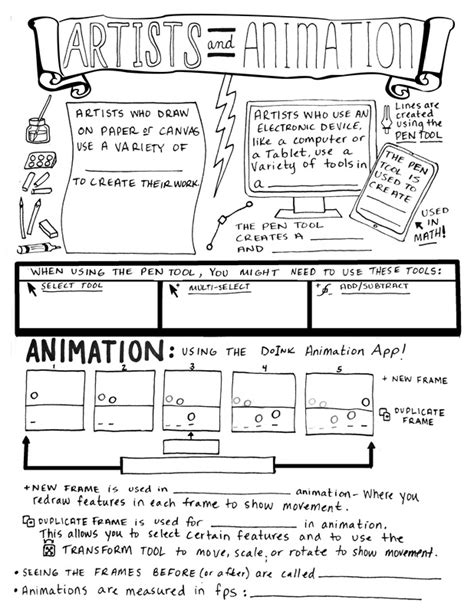 ARTISTS and ANIMATION
ARTISTS WHO DRAW
ON PAPER or CANVAS
USE A VARIETY OF
TO CREATE THEIR WORK.
ARTISTS WHO USE AN
ELECTRONIC DEVICE,
like a computer or
a Tablet, use a
Variety of tools in
a
Lines are
created
using the
PEN TOOL
THE PEN
TOOL IS
USED TO
CREATE
USED
IN
MATH!
THE PEN TOOL
CREATES A
AND
WHEN USING THE PEN TOOL, YOU MIGHT NEED TO USE THESE TOOLS:
SELECT TOOL
MULTI-SELECT
ADD/SUBTRACT
ANIMATION: USING THE DOINK Animation App!
1 2 3 4 5
+ NEW FRAME
DUPLICATE
FRAME
+NEW FRAME is used in animation- Where you
redraw features in each frame to show movement.
DUPLICATE FRAME is used for in animation.
This allows you to select certain features and to use the
TRANSFORM TOOL to move, scale, or rotate to show movement.
• SEEING THE FRAMES BEFORE (or after) are called
• Animations are measured in fps: